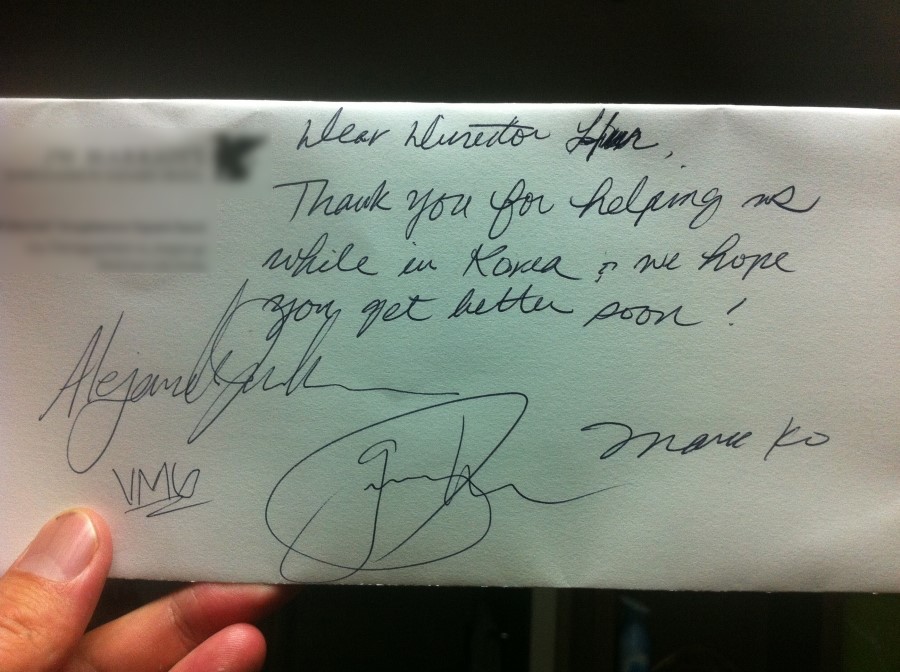 Dear Director
Thank you for helping us
while in Korea & we hope
you get better soon!
Alejandro
VMG
Mark Ko